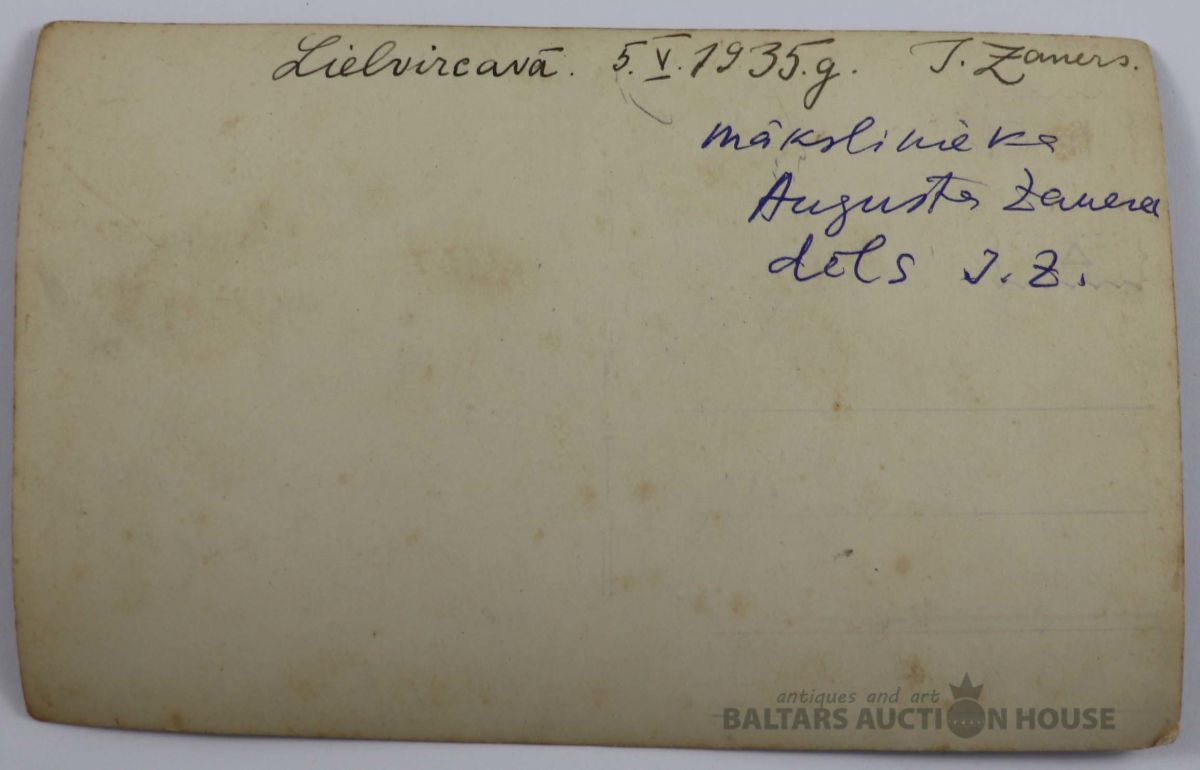 Lielvircavā. 5.V.1935.g. J. Zaners.
mākslinieka
Augusta Zanera
dēls J. Z.
antiques and art
BALTARS AUCTION HOUSE